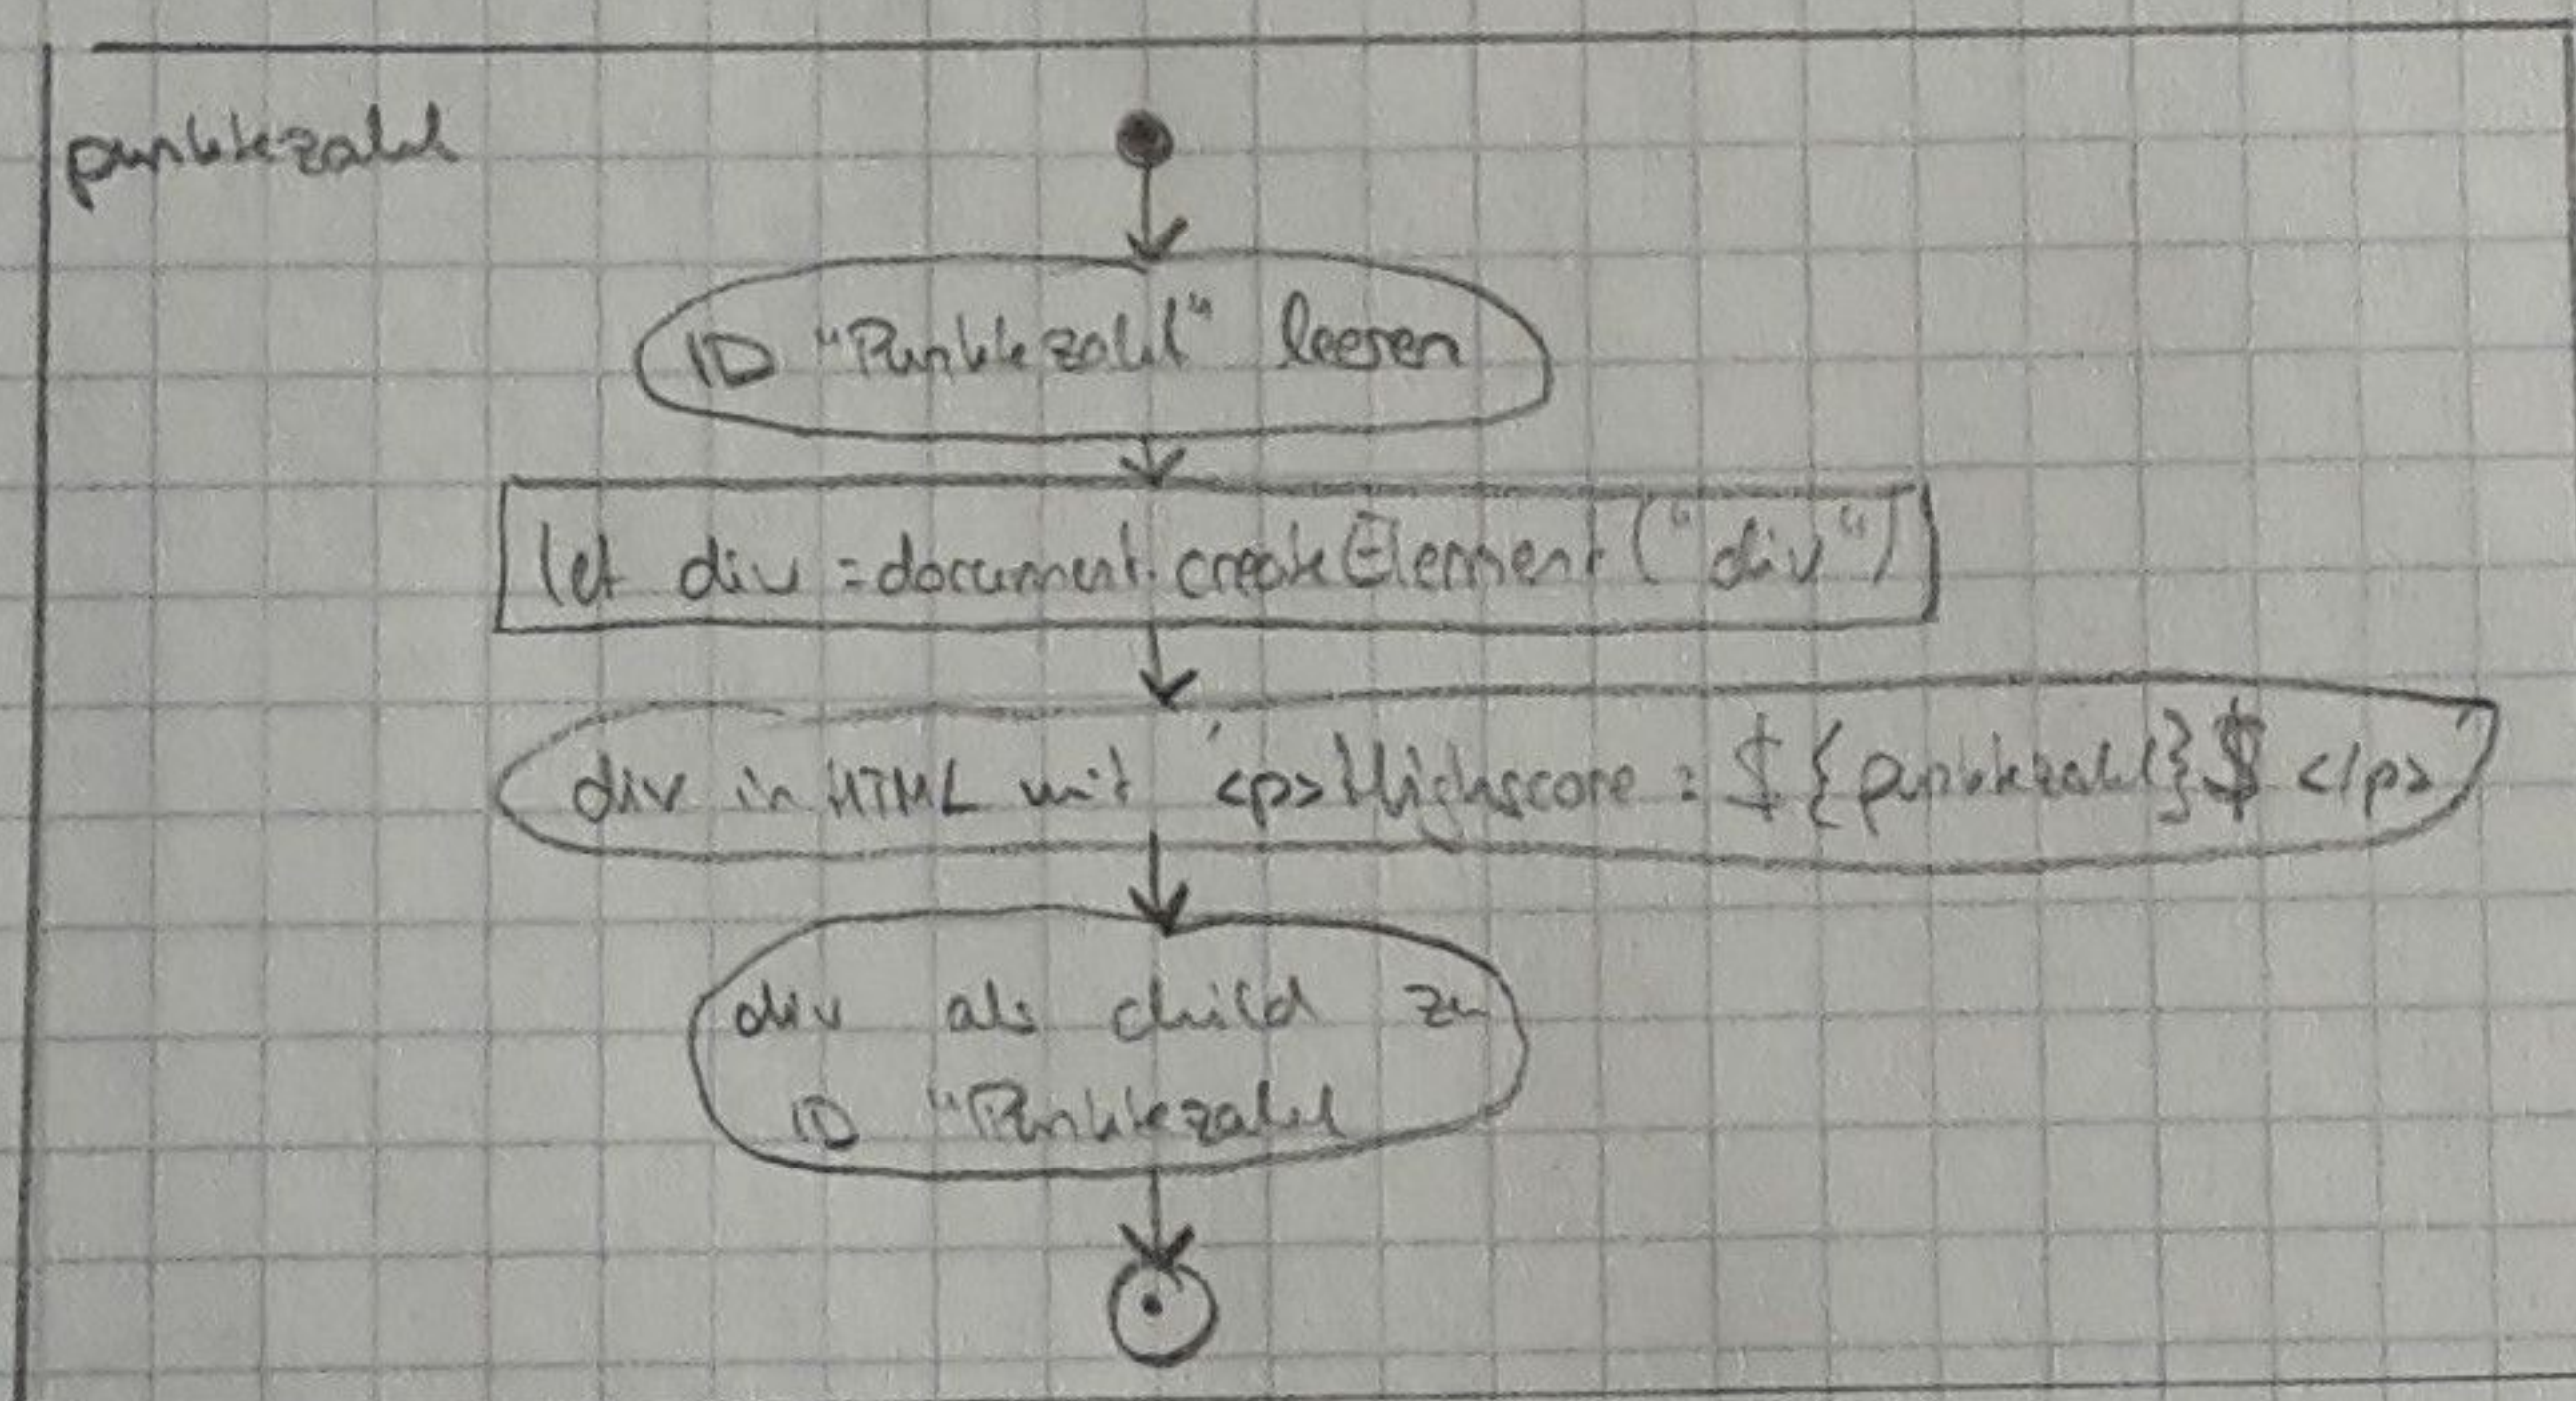 punktezahl
ID "Punktezahl" leeren
let div = document.createElement("div")
div in HTML mit `<p>Highscore : ${punktezahl}$ </p>`
div als child zu
ID "Punktezahl